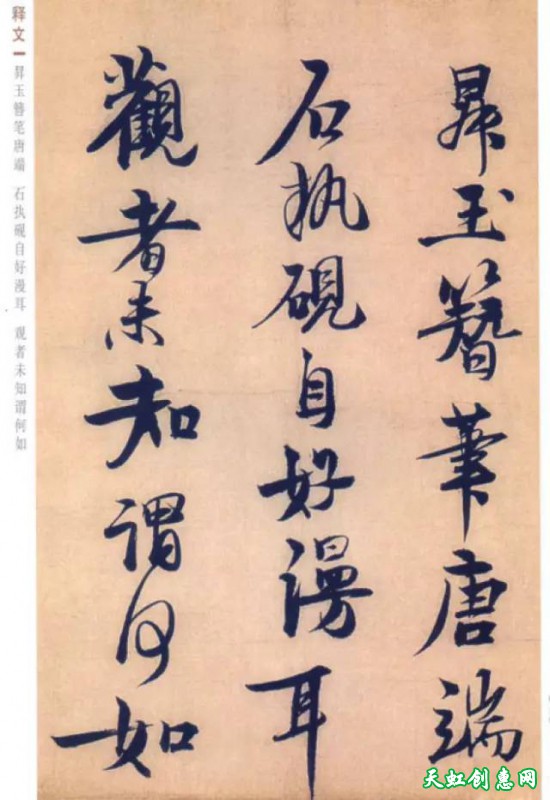 昇玉簪筆唐端
石执硯自好漫耳
觀者未知謂何如
释文一
昇玉簪笔唐端 石执砚自好漫耳 观者未知谓何如
天虹创惠网